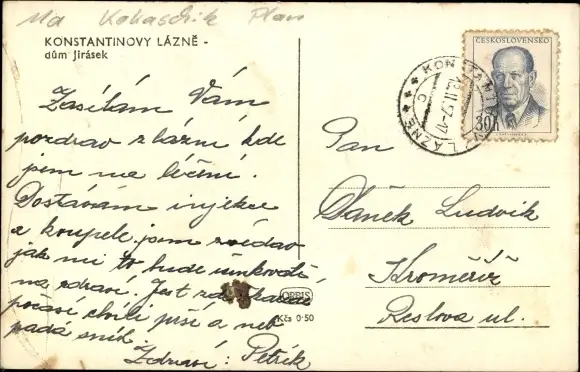 KONSTANTINOVY LÁZNĚ -
dům Jirásek
Zasílám Vám
pozdrav z lázní kde
jsem na léčení.
Dostávám injekce
a koupele jsem zvědav
jak mi to bude účinkovati
na zdraví. Jest zde
počasí chvíli prší a neb
padá sníh.
Zdraví: Petrík
ORBIS
Kčs 0·50
ČESKOSLOVENSKO
30h
KONSTANT
LÁZNĚ
Pan
Vaněk Ludvík
Kroměříž
Reslova ul.